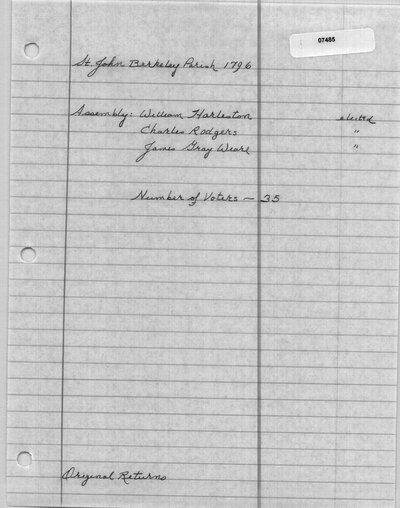 07485
St. John Berkeley Parish 1796
Assembly: William Harleston elected
Charles Rodgers "
James Gray Wearl "
Number of Voters — 35
Original Returns